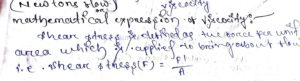 (Newtons slow) viscosity
mathematical expression of viscosity:-
Shear stress is defined as the force per unit
area which is applied to bring about flow
i.e. shear stress (F) = F'/A